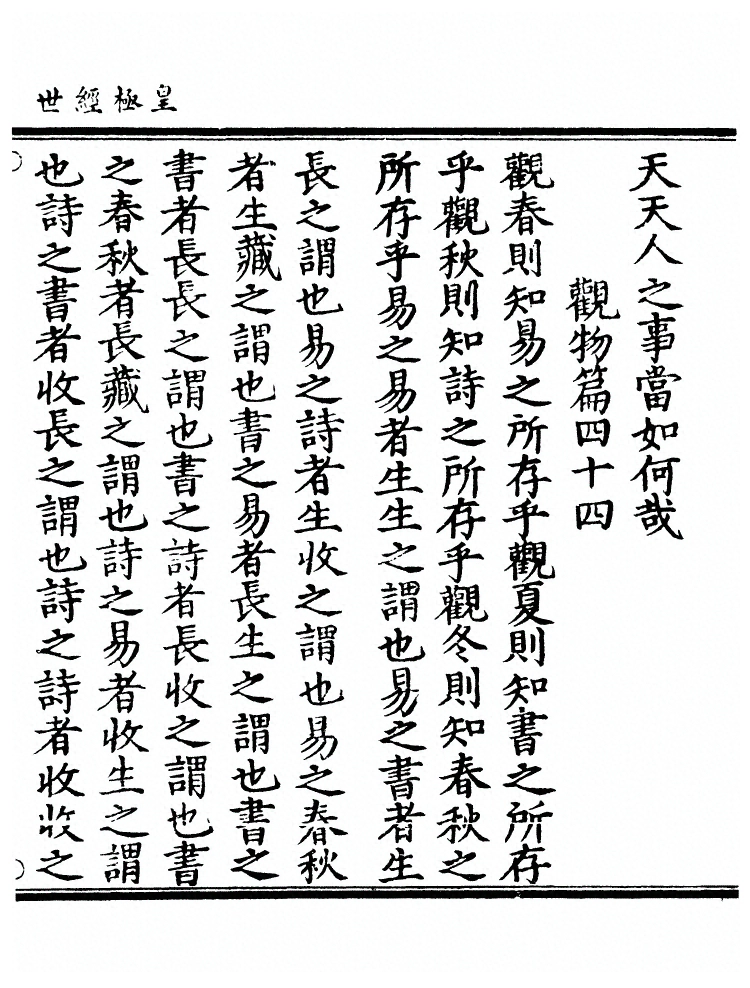 皇極經世
天天人之事當如何哉
觀物篇四十四
觀春則知易之所存乎觀夏則知書之所存
乎觀秋則知詩之所存乎觀冬則知春秋之
所存乎易之易者生生之謂也易之書者生
長之謂也易之詩者生收之謂也易之春秋
者生藏之謂也書之易者長生之謂也書之
書者長長之謂也書之詩者長收之謂也書
之春秋者長藏之謂也詩之易者收生之謂
也詩之書者收長之謂也詩之詩者收收之